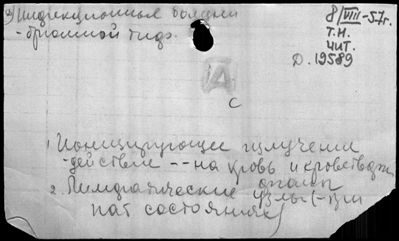 2) Инфекционные болезни
- брюшной тиф.
8/VIII-57г.
Т.Н.
ЧИТ.
Д. 19589
С
1 Ионизирующее излучени
- действие -- на кровь и кроветворн
2. Лимфатические узлы (- при
пат состояниях)